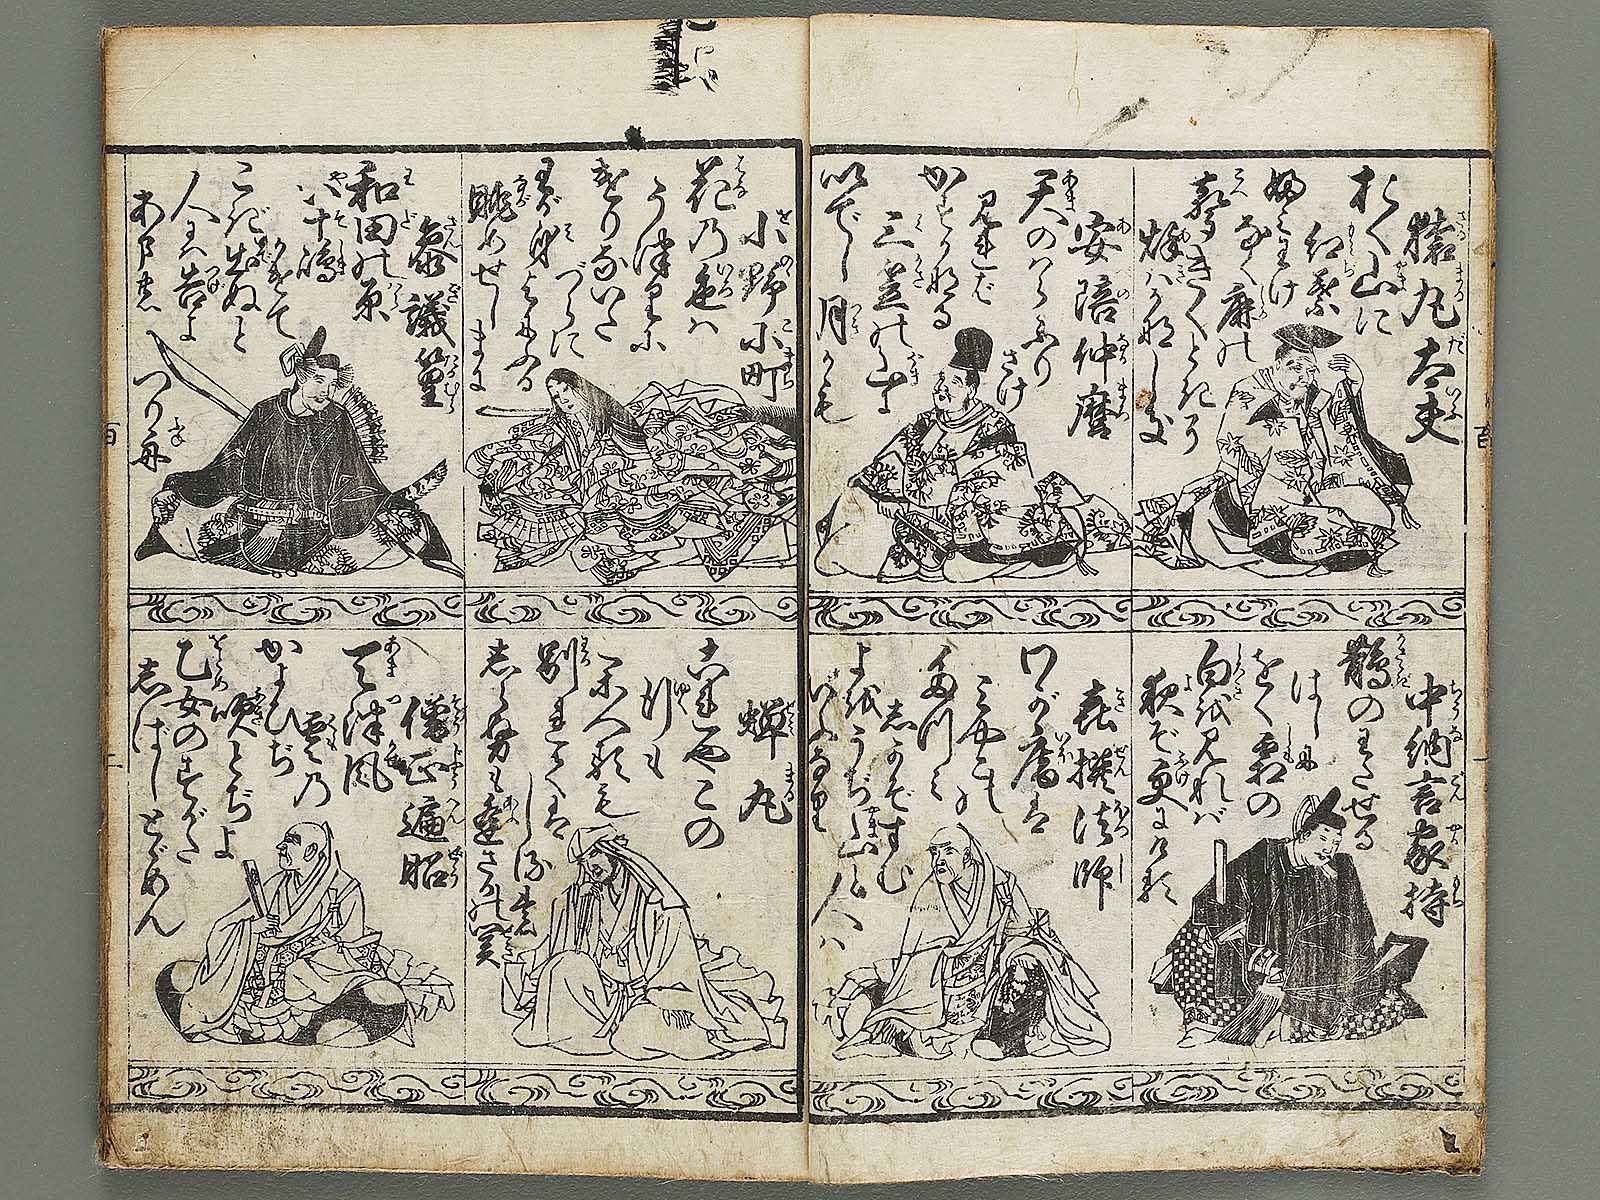 猿丸太夫
おく山に
紅葉
ふみわけ
なく鹿の
声きくときぞ
秋はかなしき
中納言家持
鵲のわたせる
はしに
をく霜の
白きを見れば
夜ぞ更にける
安陪仲麿
天のはらふり
さけ
見れば
かすがなる
三笠の山に
いでし月かも
喜撰法師
わが庵は
みやこの
たつみ
しかぞすむ
よをうぢ山と人は
いふなり
小野小町
花の色は
うつりに
けりないた
づらに
わが身よにふる
眺めせしまに
蝉丸
これやこの
行も
かへるも
別れては
しるも
しらぬも逢さかの関
参議篁
和田の原
八十嶋
かけて
こぎ出ぬと
人には告よ
あまの つり舟
僧正遍昭
天津風
雲の
かよひぢ
吹とぢよ
乙女のすがた
しばしとゞめん